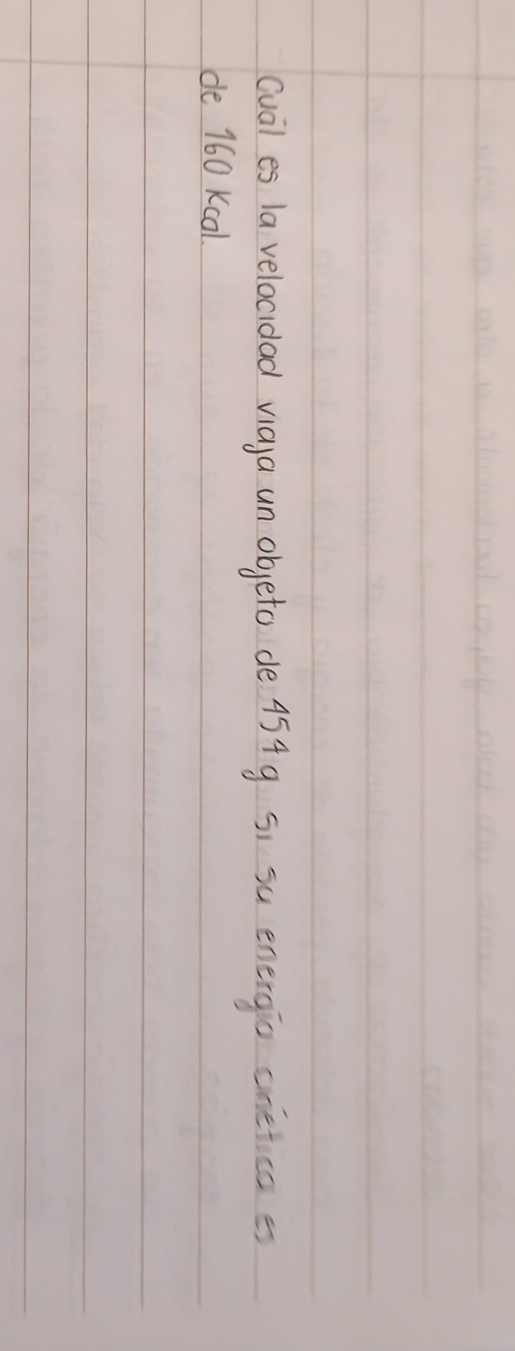 Cuál es la velocidad viaja un objeto de 454g si su energía cinética es
de 160 Kcal.